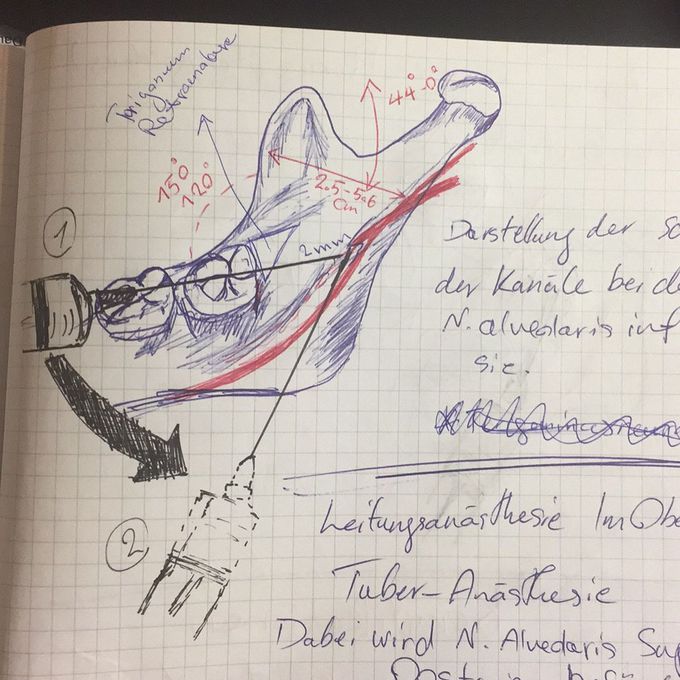 Trigonum
Retromolare
150°
120°
44°-0°
2.5-5.6
cm
2mm
1
2
Darstellung der
der Kanäle bei
N. alveolaris inf
sie.
Leitungsanästhesie Im Obe
Tuber-Anästhesie
Dabei wird N. Alveolaris Sup